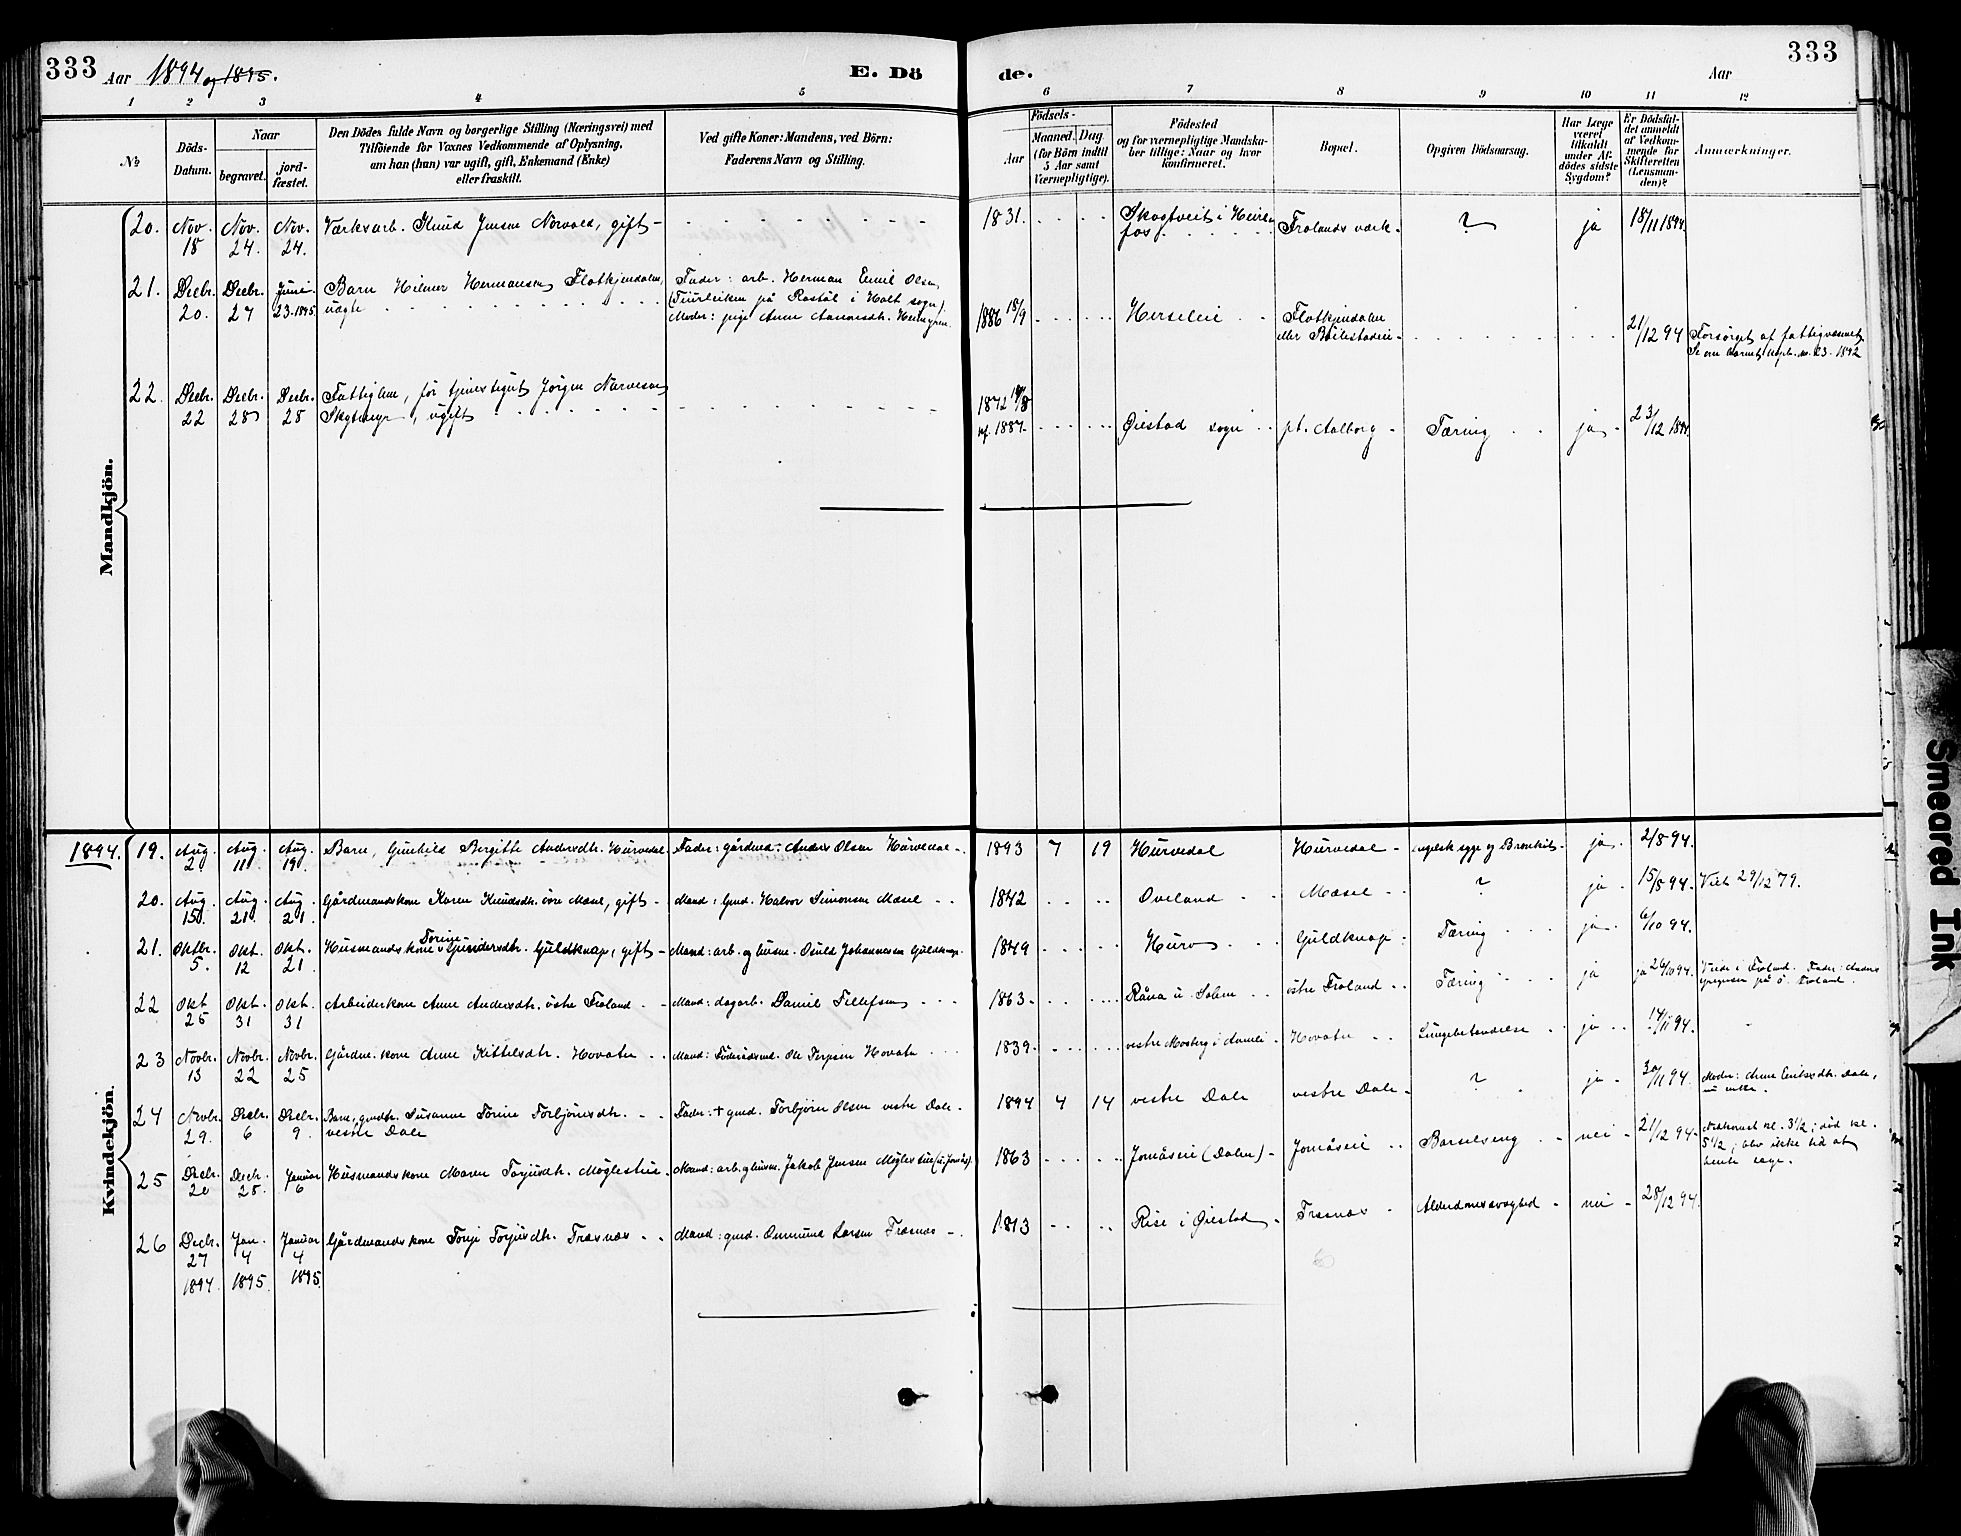 333 Aar 1894 og 1895. E. Dö de. Aar 333
1 2 3 4 5 6 7 8 9 10 11 12
No
Döds-Datum.
Naar
begravet.
jord-fæstet.
Den Dödes fulde Navn og borgerlige Stilling (Næringsvei) med
Tilföiende for Voxnes Vedkommende af Oplysning,
om han (hun) var ugift, gift, Enkemand (Enke)
eller fraskilt.
Ved gifte Koner: Mandens, ved Börn:
Faderens Navn og Stilling.
Födsels-
Aar
Maaned. Dag
(for Börn indtil
5 Aar samt
Værnepligtige).
Födested
og for værnepligtige Mandska-
ber tillige: Naar og hvor
konfirmeret.
Bopæl.
Opgiven Dödsaarsag.
Har Læge
været
tilkaldt
under Af-
dödes sidste
Sygdom?
Er Dödsfal-
det anmeldt
af Vedkom-
mende for
Skifteretten
(Lensman-
den)?
Anmærkninger.
Mandkjön.
20. Nov. 18 Nov. 24. Nov. 24. Værksarb. Knud Jensen Norvald, gift - 1831. Skogtveit i Heire-
fos Frolands værk. ? ja 18/11 1894.
21. Decbr. 20. Decbr. 27 Juni 23. 1895. Barn Hilmer Hermansen Flatkjendalen,
uægte Fader: arb. Herman Emil Olsen
på Rostöl i Holt sogn)
Moder: pige Anne
1886 18/9 Herselei Flatkjendalen
eller Böilestadeie 21/12 94 Forsörget af fattigvæsenet.
1892
22. Decbr. 22 Decbr. 28 Decbr. 28 Fattiglem, för tjenestegut Jörgen Narvesen
ugift 1872 19/8
kf. 1887. Öiestad sogn pt. Aalborg - Tæring ja 23/12 1894.
Kvindekjön.
1894. 19. Aug. 2 Aug. 11 Aug. 19 Barn, Gunhild Birgitte Andersdtr. Hurvedal Fader: gårdmd. Anders Olsen Hurvedal 1893 7 19 Hurvedal Hurvedal - engelsk syge og Bronkit - ja 2/8 94.
20. Aug. 15 Aug. 21. Aug. 21. Gårdmandskone Karen Knudsdtr. övre Mæsel, gift - Mand: Gmd. Halvor Simonsen Mæsel 1842 Oveland Mæsel ? ja 15/8 94. Viet 29/12 79.
21. Oktbr. 5. Okt. 12 Okt. 21. Husmandskone Torine Gundersdtr. Guldknap, gift - Mand: arb. og husm. Osuld Johannesen Guldknap. 1849 Hurv Guldknap Tæring ja 6/10 94.
22 Okt 25 Okt. 31 Okt. 31 Arbeiderkone Anne Andersdtr. östre Froland Mand: dagarb. Daniel Tellefsen 1863 Råna u. Solem östre Froland Tæring ja ja 26/10 94. Viede i Froland. Fader: Anders
på ö. Froland.
23 Novbr. 13 Novbr. 22 Novbr. 25 Gårdm. kone Anne Kittelsdtr. Hovatn Mand: Föderådsmd. Ole Terjesen Hovatn 1839 vestre Mosberg i Aamli Hovatn Lungebetændelse ja 14/11 94.
24 Novbr. 29. Decbr. 6 Decbr. 9. Barn, gmdtr. Susanne Torine Torbjörnsdtr.
vestre Dale Fader: + gmd. Torbjörn Olsen vestre Dale 1894 4 14 vestre Dale vestre Dale ? ja 30/11 94. Moder: Anne Eriksdtr. Dale,
nu enke.
25 Decbr. 20 Decbr. 28. Januar 6 Husmandskone Maren Terjusdtr. Möglestue Mand: arb. og husm. Jakob Jensen Möglestue (u. Jomås). 1863 Jomåseie (Dalen) Jomåseie Barselseng nei 21/12 94 Nedkomst kl. 3 1/2; död kl.
5 1/2; blev ikke tid at
hente læge.
26 Decbr. 27 1894. Jan. 4 1895. Januar 4 1895. Gårdmandskone Torje Terjusdtr. Trævnæs Mand: gmd. Ommund Larsen Trævnæs 1813 Rise i Öiestad Trævnæs Alderdomssvaghed nei 28/12 94.
Smeared Ink